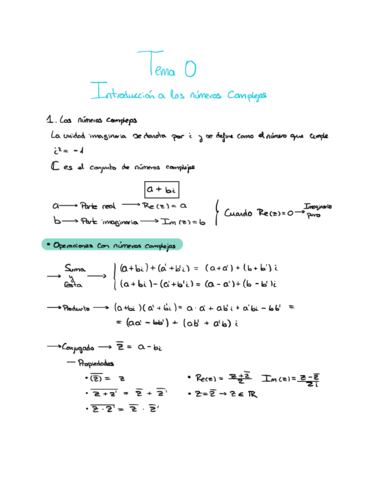 Tema 0
Introducción a los números complejos
1. Los números complejos
La unidad imaginaria se denota por i y se define como el número que cumple
i² = -1
ℂ es el conjunto de números complejos
a + bi
a → Parte real → Re(z) = a
b → Part imaginaria → Im(z) = b
Cuando Re(z) = 0 → Imaginario puro
• Operaciones con números complejos
→ Suma y Resta
(a+bi) + (a'+b'i) = (a+a') + (b+b')i
(a+bi) - (a'+b'i) = (a-a') + (b-b')i
→ Producto → (a+bi)(a'+b'i) = a·a' + ab'i + a'bi - bb' =
= (aa' - bb') + (ab' + a'b)i
→ Conjugado → z̅ = a - bi
— Propiedades
• \overline{(z̅)} = z
• \overline{z + z'} = z̅ + z̅'
• \overline{z · z'} = z̅ · z̅'
• Re(z) = (z + z̅)/2 Im(z) = (z - z̅)/2i
• z = z̅ → z ∈ ℝ